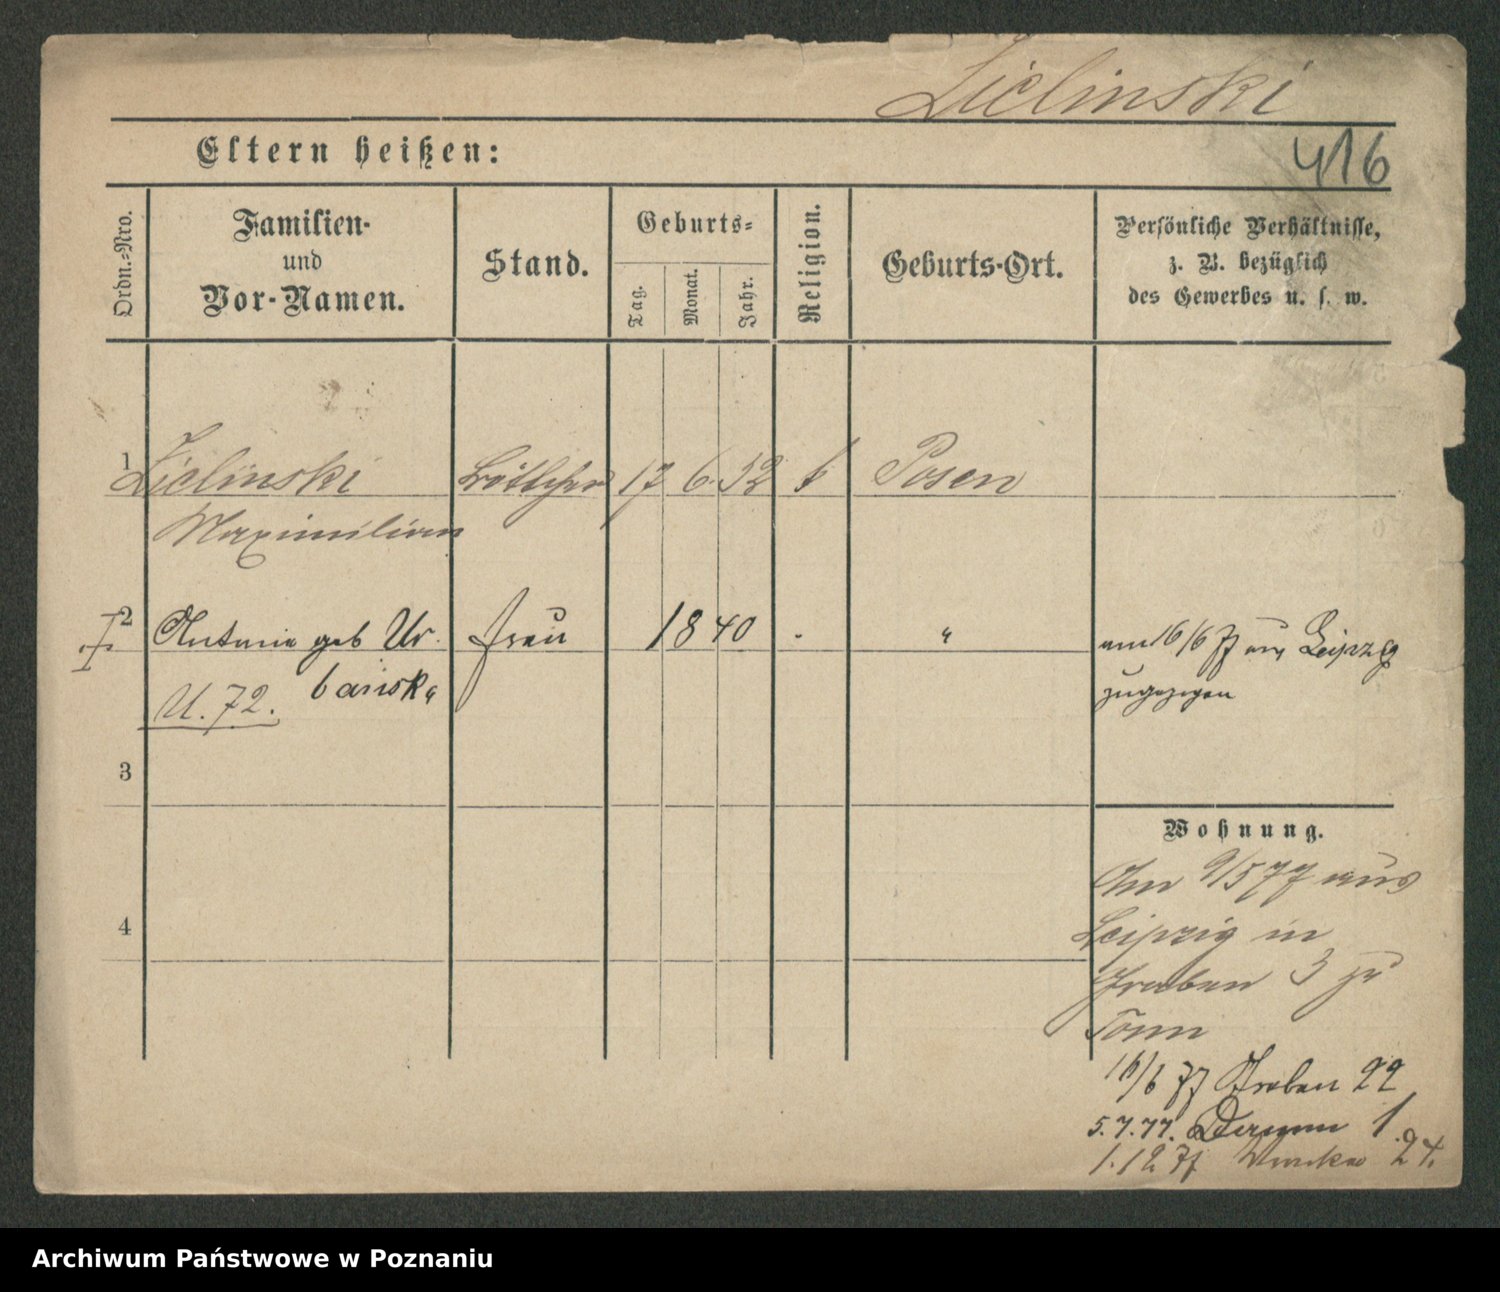 Zielinski
416
Eltern heißen:
Ordn.-Nro.
Familien-
und
Vor-Namen.
Stand.
Geburts-
Tag.
Monat.
Jahr.
Religion.
Geburts-Ort.
Persönliche Verhältnisse,
z. B. bezüglich
des Gewerbes u. s. w.
1 Zielinski Böttcher 17 6. 52 k Posen
Maximilian
2 Antonie geb Ur- Frau 1840 " am 16/6 77 aus Leipzig
bańska zugezogen
U. 72.
3
Wohnung.
Am 9/5 77 aus
4
Leipzig in
Graben 3 zu
16/6 77 Graben 22
5.7.77. 1.
1.12 77 24.
Archiwum Państwowe w Poznaniu